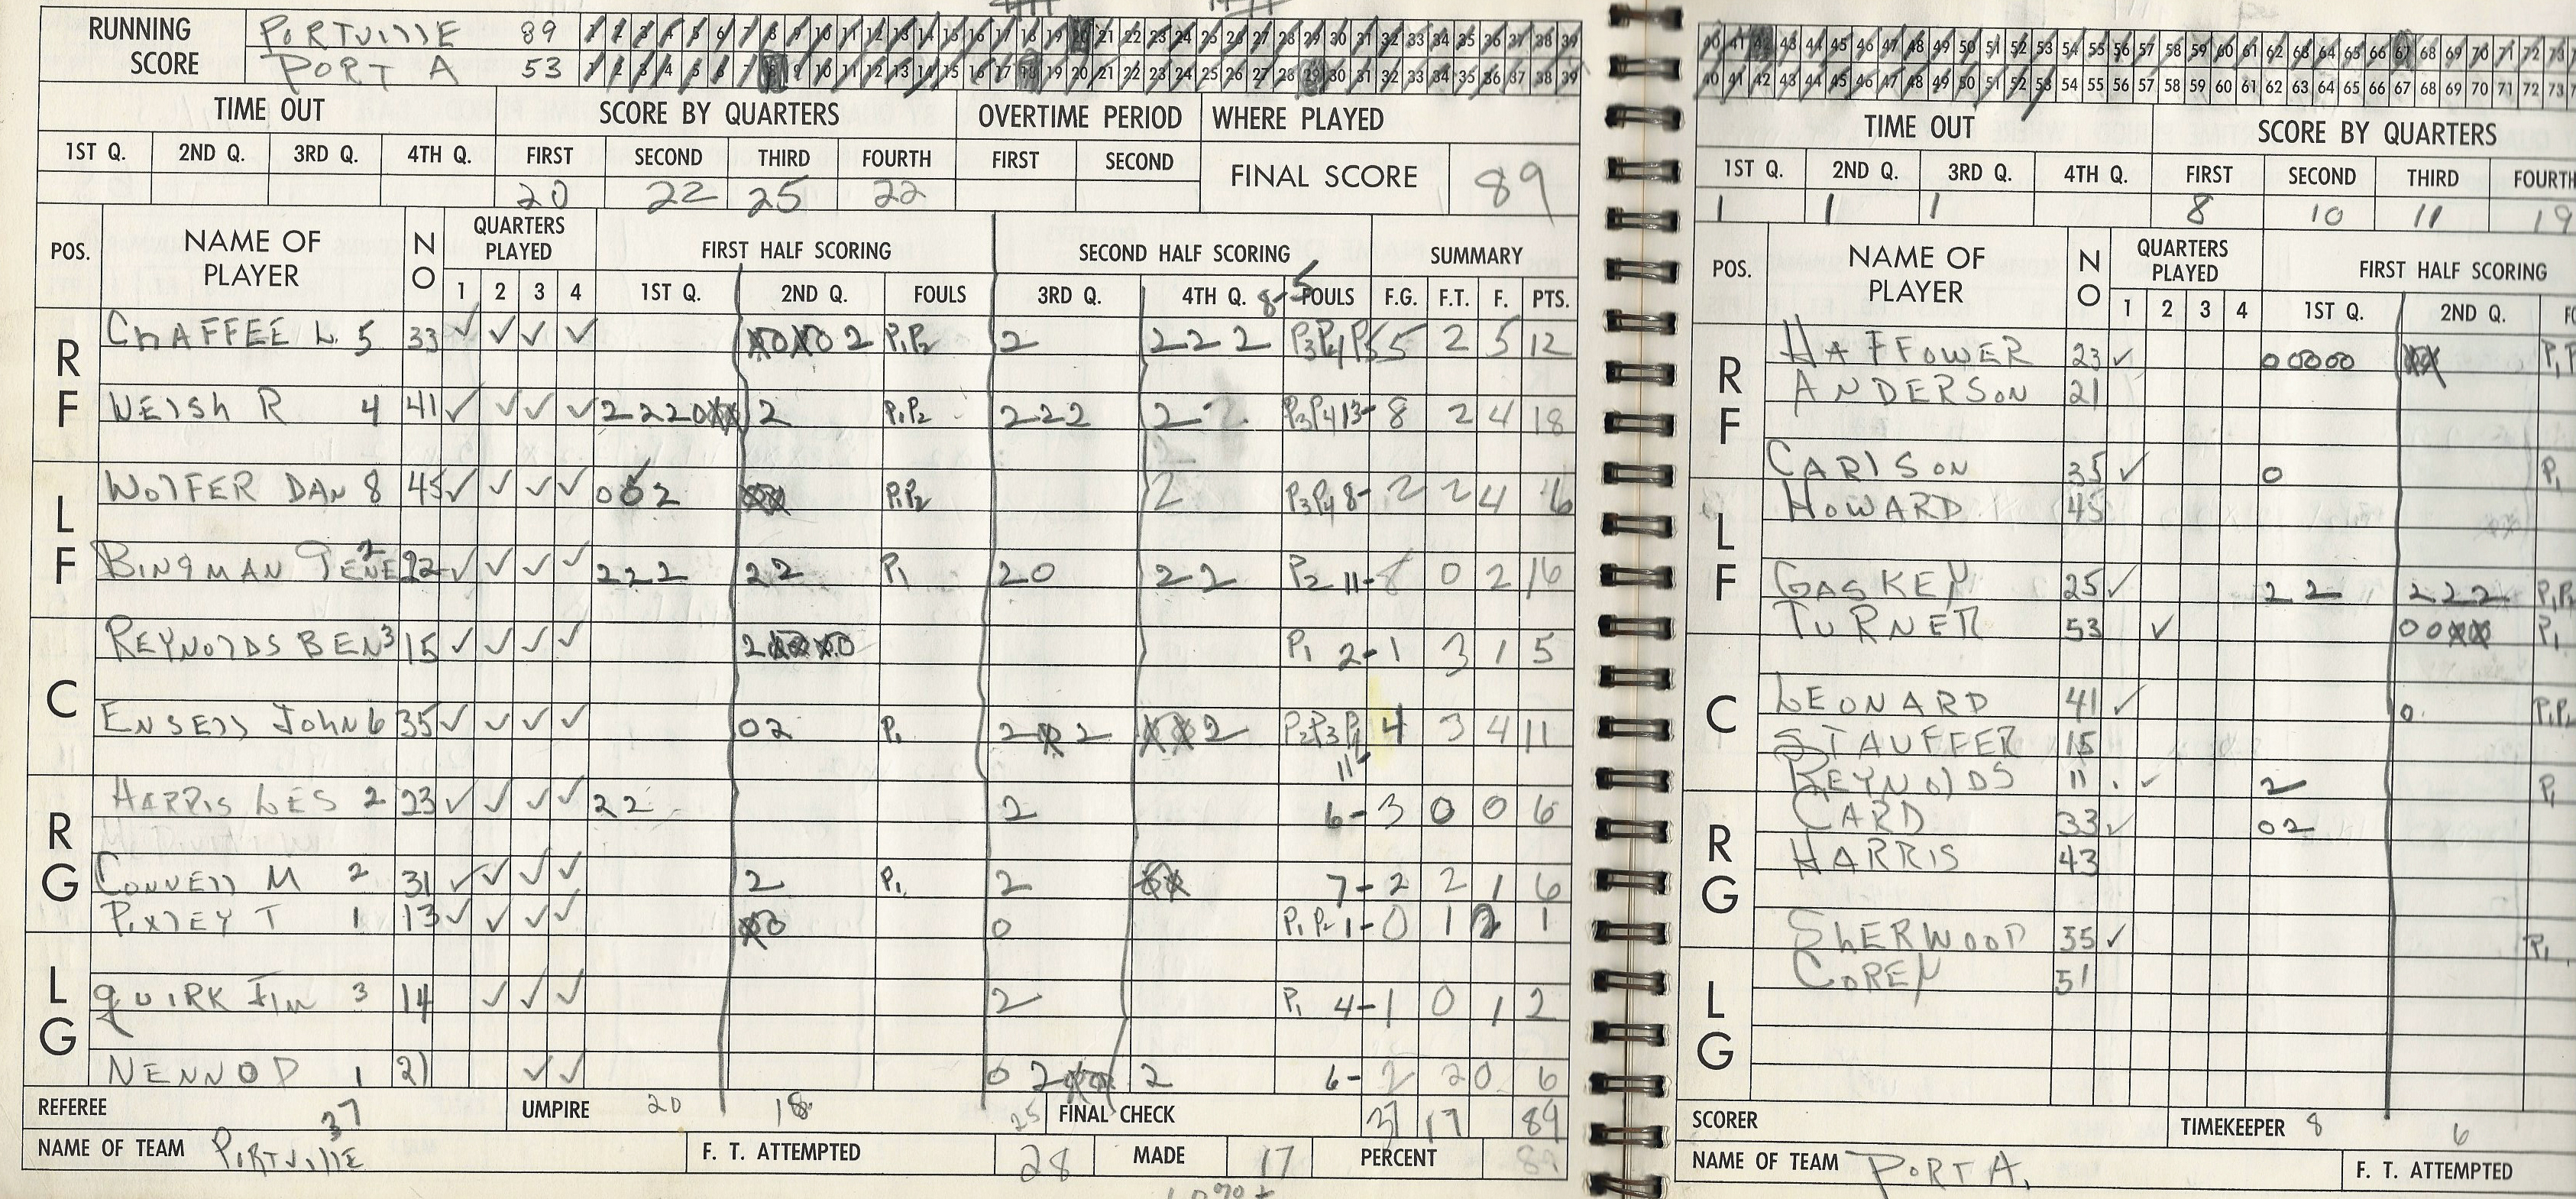 RUNNING SCORE
PORTVILLE 89 1 2 3 4 5 6 7 8 9 10 11 12 13 14 15 16 17 18 19 20 21 22 23 24 25 26 27 28 29 30 31 32 33 34 35 36 37 38 39
PORT A 53 1 2 3 4 5 6 7 8 9 10 11 12 13 14 15 16 17 18 19 20 21 22 23 24 25 26 27 28 29 30 31 32 33 34 35 36 37 38 39
TIME OUT SCORE BY QUARTERS OVERTIME PERIOD WHERE PLAYED
1ST Q. 2ND Q. 3RD Q. 4TH Q. FIRST SECOND THIRD FOURTH FIRST SECOND FINAL SCORE 89
20 22 25 22
POS. NAME OF PLAYER NO QUARTERS PLAYED FIRST HALF SCORING SECOND HALF SCORING SUMMARY
1 2 3 4 1ST Q. 2ND Q. FOULS 3RD Q. 4TH Q. 8-5 FOULS F.G. F.T. F. PTS.
RF
CHAFFEE L 5 33 ✓ ✓ ✓ ✓ 2 P1P2 2 2 2 2 P3P4P5 5 2 5 12
WElSh R 4 41 ✓ ✓ ✓ ✓ 2 2 2 0 2 P1P2 2 2 2 2 2 P3P4 13- 8 2 4 18
LF
WOlFER DAN 8 45 ✓ ✓ ✓ ✓ 0 0 2 P1P2 2 P3P4 8- 2 2 4 6
BINgMAN GENE 2 22 ✓ ✓ ✓ ✓ 2 2 2 2 2 P1 2 0 2 2 P2 11- 8 0 2 16
C
REYNOlDS BEN 3 15 ✓ ✓ ✓ ✓ 2 P1 2- 1 3 1 5
ENSEll JohN 6 35 ✓ ✓ ✓ ✓ 0 2 P1 2 2 2 P2P3P4 11 4 3 4 11
RG
HARRIS LES 2 23 ✓ ✓ ✓ ✓ 2 2 2 6- 3 0 0 6
CONNEll M 2 31 ✓ ✓ ✓ ✓ 2 P1 2 7- 2 2 1 6
PIXlEY T 1 13 ✓ ✓ ✓ ✓ 0 P1P2 1- 0 1 2 1
LG
QUIRK JIM 3 14 ✓ ✓ ✓ 2 P1 4- 1 0 1 2
NENNO D 1 21 ✓ ✓ 0 2 2 6- 2 2 0 6
REFEREE 37 UMPIRE 20 18 25 FINAL CHECK 37 17 89
NAME OF TEAM PORTVIllE F. T. ATTEMPTED 28 MADE 17 PERCENT 89
40 41 42 43 44 45 46 47 48 49 50 51 52 53 54 55 56 57 58 59 60 61 62 63 64 65 66 67 68 69 70 71 72 73
40 41 42 43 44 45 46 47 48 49 50 51 52 53 54 55 56 57 58 59 60 61 62 63 64 65 66 67 68 69 70 71 72 73
TIME OUT SCORE BY QUARTERS
1ST Q. 2ND Q. 3RD Q. 4TH Q. FIRST SECOND THIRD FOURTH
1 1 1 8 10 11 19
POS. NAME OF PLAYER NO QUARTERS PLAYED FIRST HALF SCORING
1 2 3 4 1ST Q. 2ND Q.
RF
HAFFOWER 23 ✓ 0 0 0 0 0 P1
ANDERSON 21
CARlSON 35 ✓ 0 P1
LF
HOWARD 45
GASKEY 25 ✓ 2 2 2 2 2 P1P2
TURNER 53 ✓ 0 0 P1
C
LEONARD 41 ✓ 0 P1P2
STAUFFER 15
REYNOlDS 11 ✓ 2 P1
RG
CARD 33 ✓ 0 2
HARRIS 43
SHERWOOD 55 ✓ P1
LG
COREY 51
SCORER TIMEKEEPER 8 6
NAME OF TEAM PORT A. F. T. ATTEMPTED